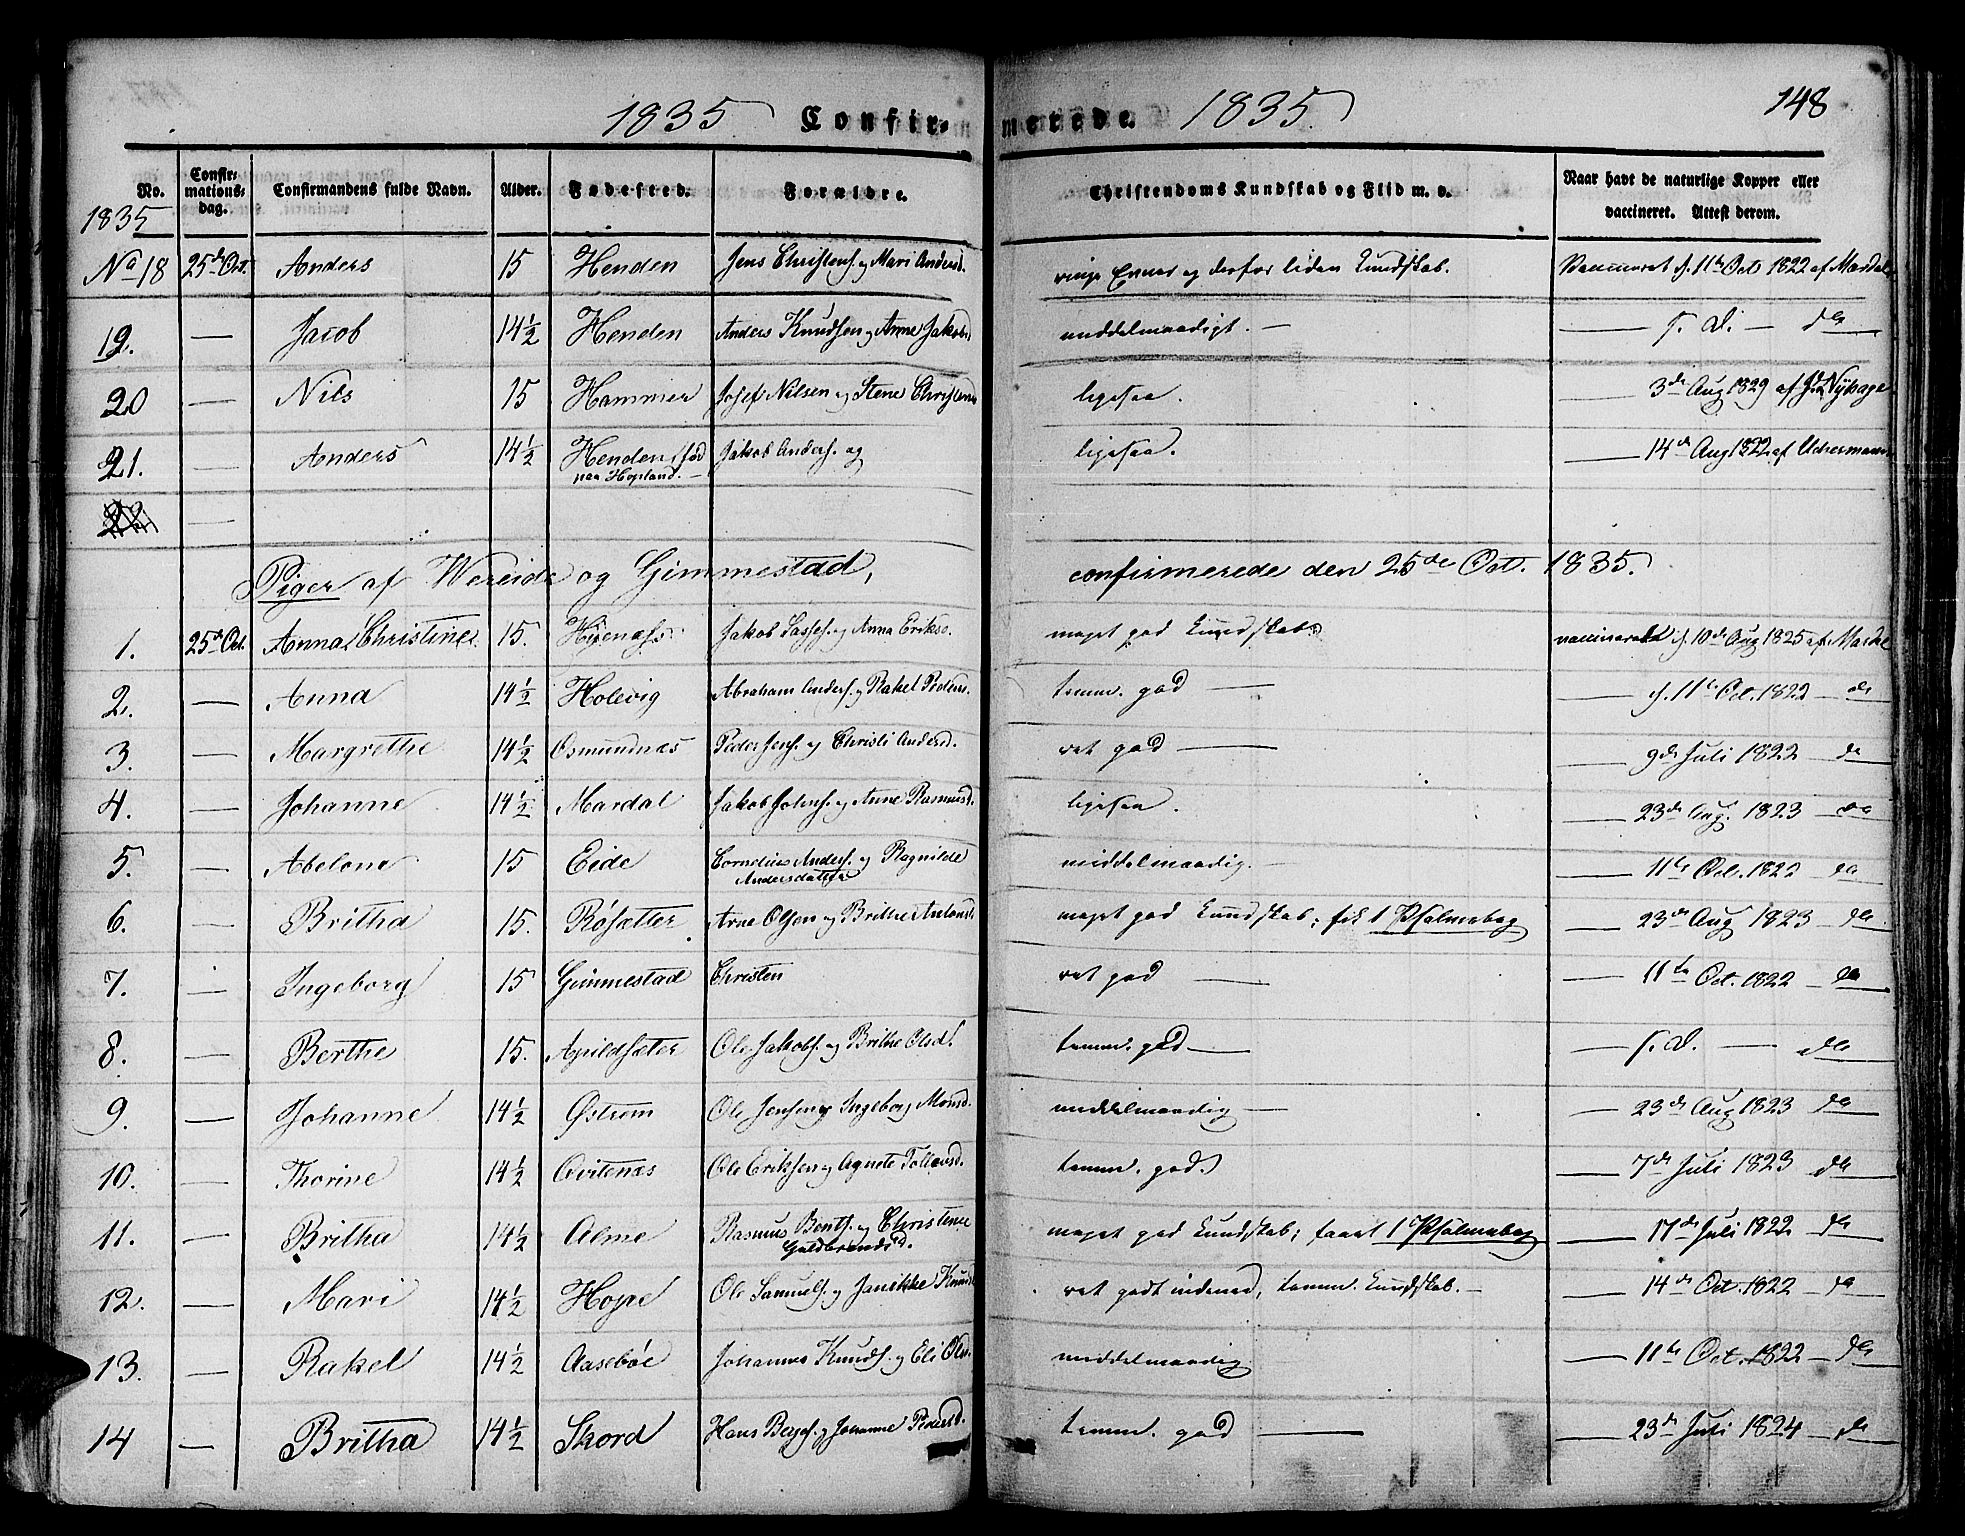 1835. Confir-
merede. 1835.
148
No. Confir-mations-dag. Confirmandens fulde Navn. Alder. Fødested. Forældre. Christendoms Kundskab og Flid m. v. Naar havt de naturlige Kopper eller vaccineret. Attest derom.
1835
No 18 25de Oct. Anders 15 Henden Jens Christens. og Mari Andersd. ringe Evner og derfor liden Kundskab. Vaccineret d. 11te Oct 1822 af Mardal
19. — Jacob 14½ Henden Anders Knudsen og Anne Jakobs middelmaadigt. — — s. D. — do
20 — Nils 15 Hammer Josef Nilsen og Stene Christens ligesaa. — 3de Aug 1829 af Nyhage
21. — Anders 14½ Henden, fød paa Hopland. — Jakob Anders. og ligesaa. — 14de Aug 1822 af Uchermann
22. —
Piger af Wereide og Gimmestad, confirmerede den 25de Oct. 1835.
1. 25de Oct. Anna Christine 15. Hyenæs Jakob Lasses. og Anna Eriksd. meget god Kundskab vaccinered d. 10de Aug 1825 af Mardal
2. — Anna 14½ Holevig Abraham Anders. og Rakel Peders. temm. god — — d. 11te Oct. 1822 — do
3. — Margrethe 14½ Osmundnæs Peder Jens. og Christi Andersd. ret god — — 9de Juli 1822 — do
4. — Johanne 14½ Mardal Jakob Johns. og Anne Rasmusd. ligesaa. — 23de Aug. 1823 — do
5. — Abelone 15 Eide Cornelius Anders. og Ragnilde Andersdatter middelmaadig. — — 11te Oct. 1822 — do
6. — Britha 15. Rösætter Arne Olsen og Brithe Antonsd meget god Kundskab; fik 1 Psalmebog — 23de Aug 1823 — do
7. — Ingeborg 15 Gimmestad Christen ret god — — 11te Oct. 1822 — do
8. — Berthe 15. Apildsæter Ole Jakobs. og Brithe Olsd. temm. god — — s. D. — do
9. — Johanne 14½ Østrem Ole Jensen og Ingeborg Monsd. middelmaadig — — 23de Aug 1823 do
10. — Thorine 14½ Qvitenæs Ole Eriksen og Agnete Tollevsd. temm. god. — 7de Juli 1823 do
11. — Britha 14½ Alme Rasmus Bents. og Christense Guldbrandsd. meget god Kundskab; faaet 1 Psalmebog — 17de Juli 1822 — do
12. — Mari 14½ Hope Ole Samuels. og Janikke Knuds ret godt indenad, temm. Kundskab. — — 14de Oct. 1822 — do
13. — Rakel 14½ Aasebøe Johannes Knuds. og Eli Ols. middelmaadig — 11te Oct. 1822 — do
14 — Britha 14½ Skord Hans Bers. og Johanne Pedersd. temm. god — — 23de Juli 1824 — do